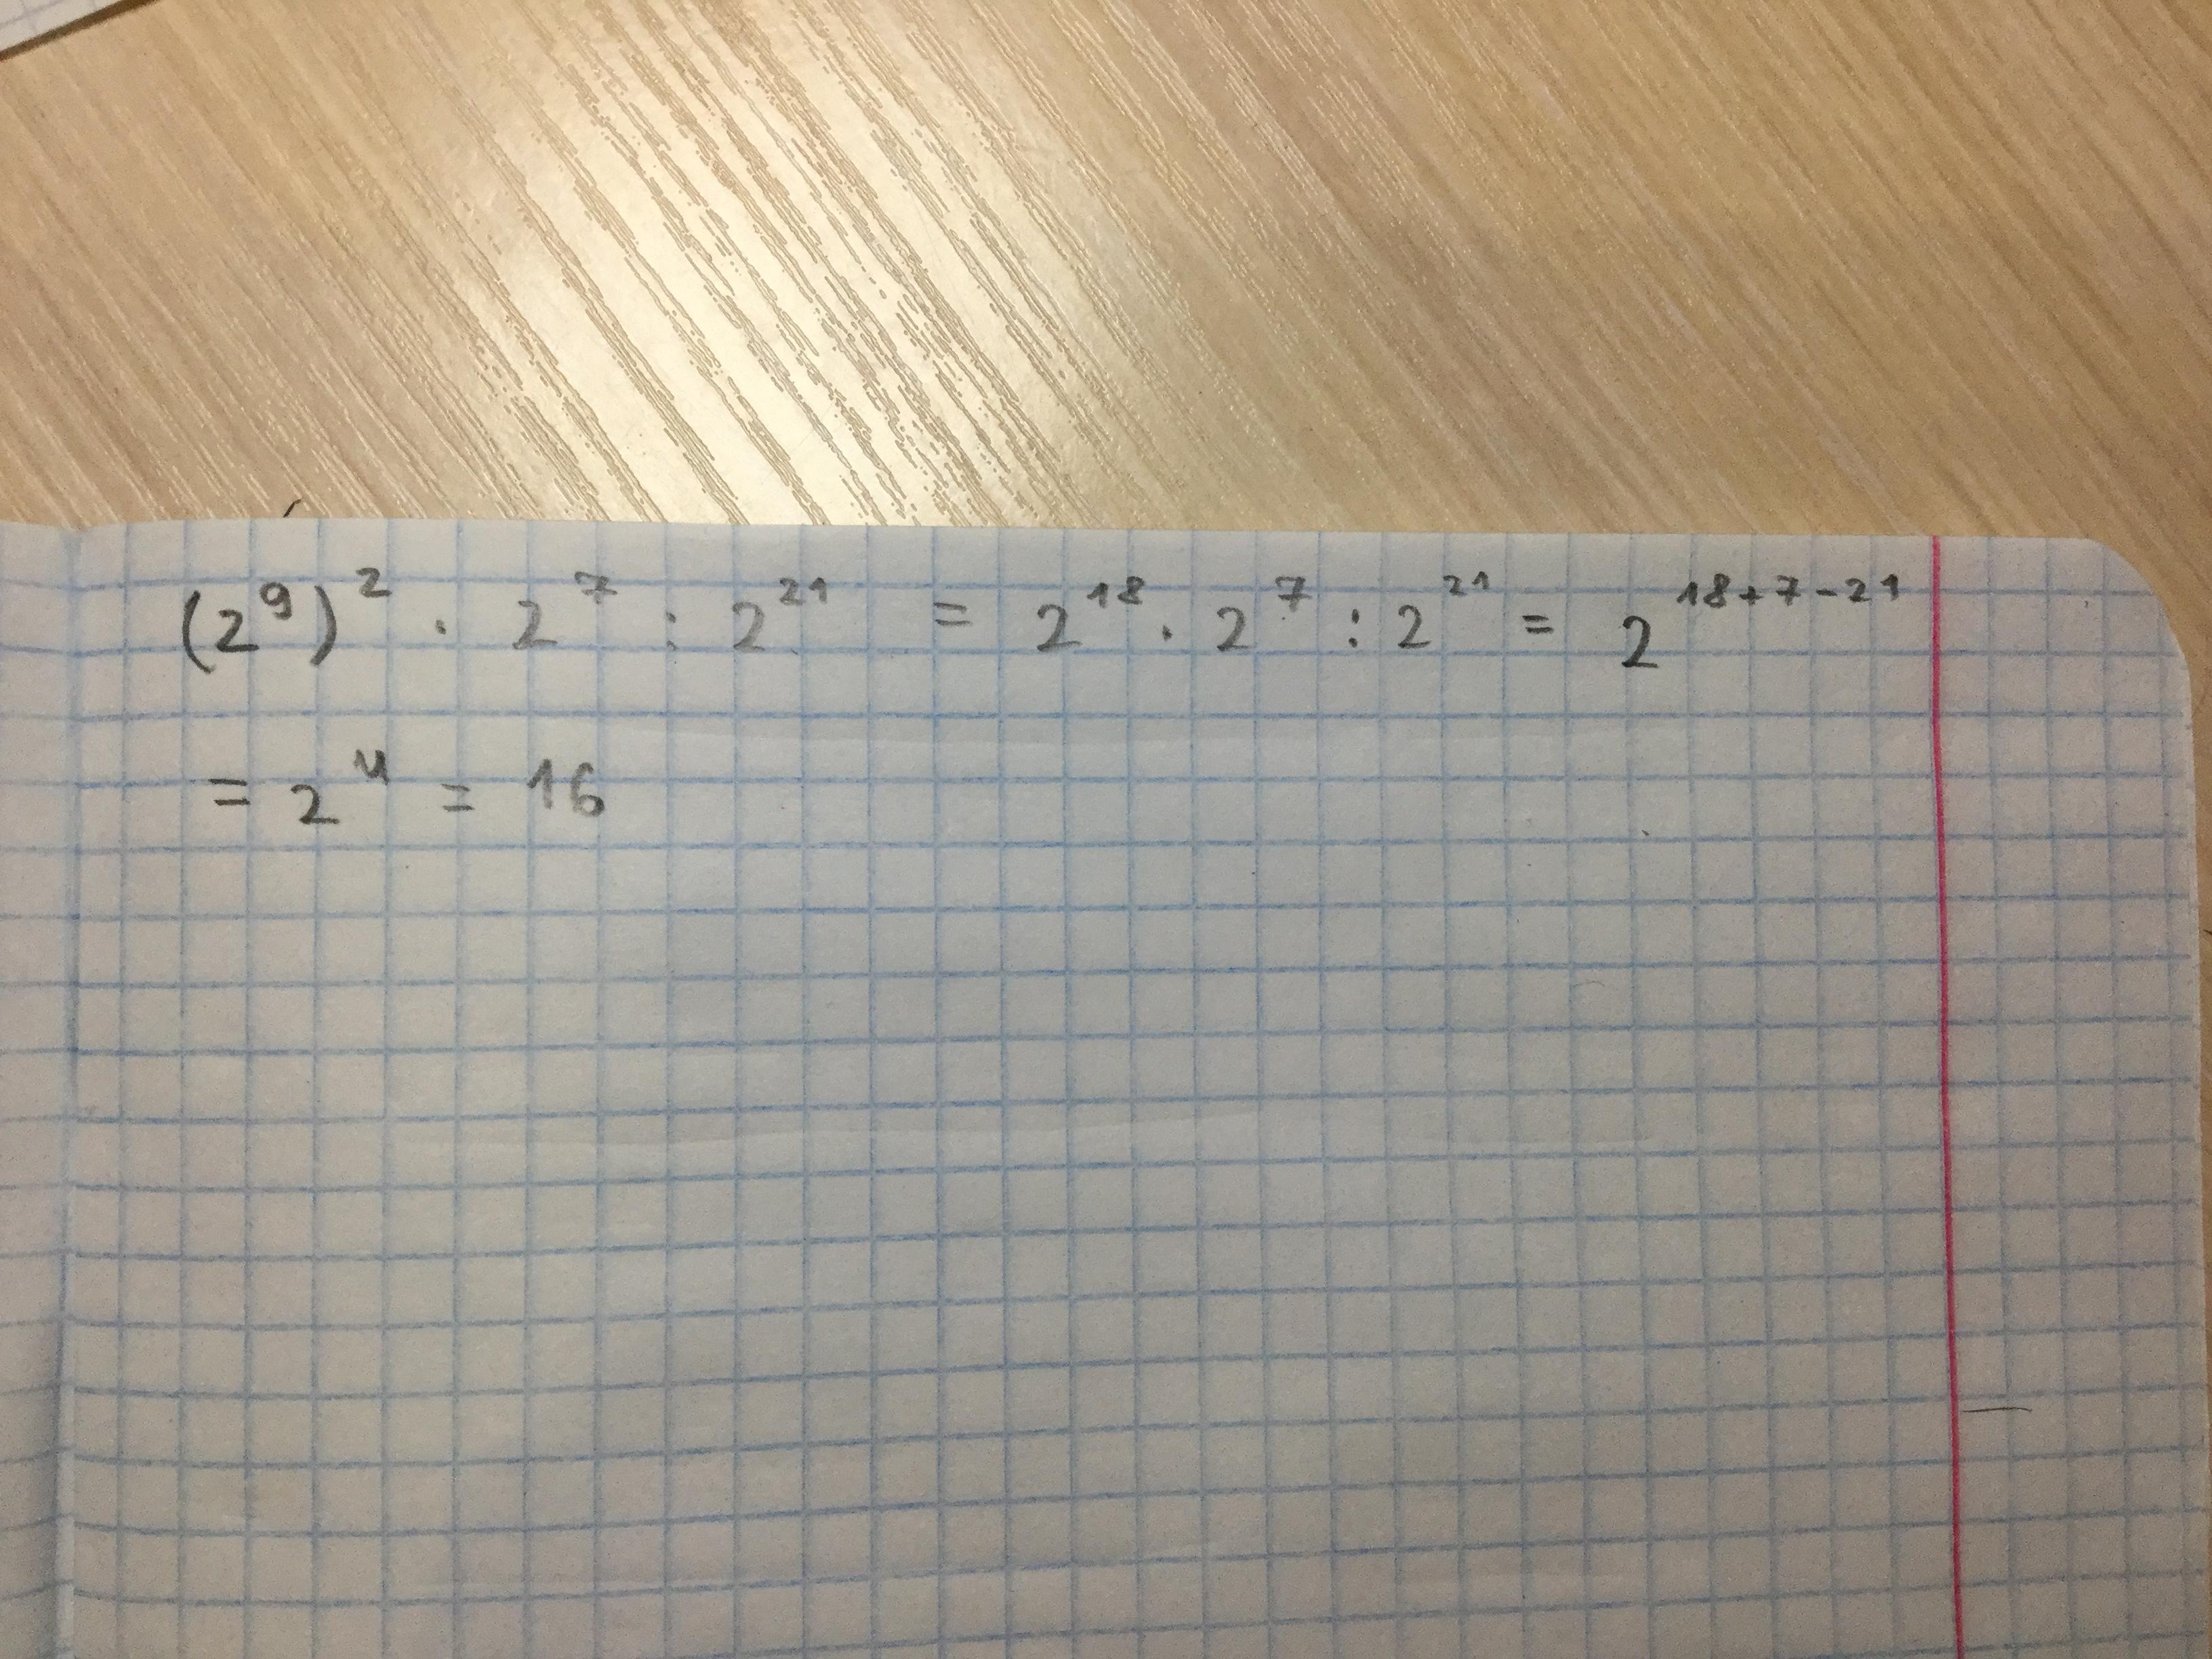 (2⁹)² · 2⁷ : 2²¹ = 2¹⁸ · 2⁷ : 2²¹ = 2¹⁸⁺⁷⁻²¹
= 2⁴ = 16